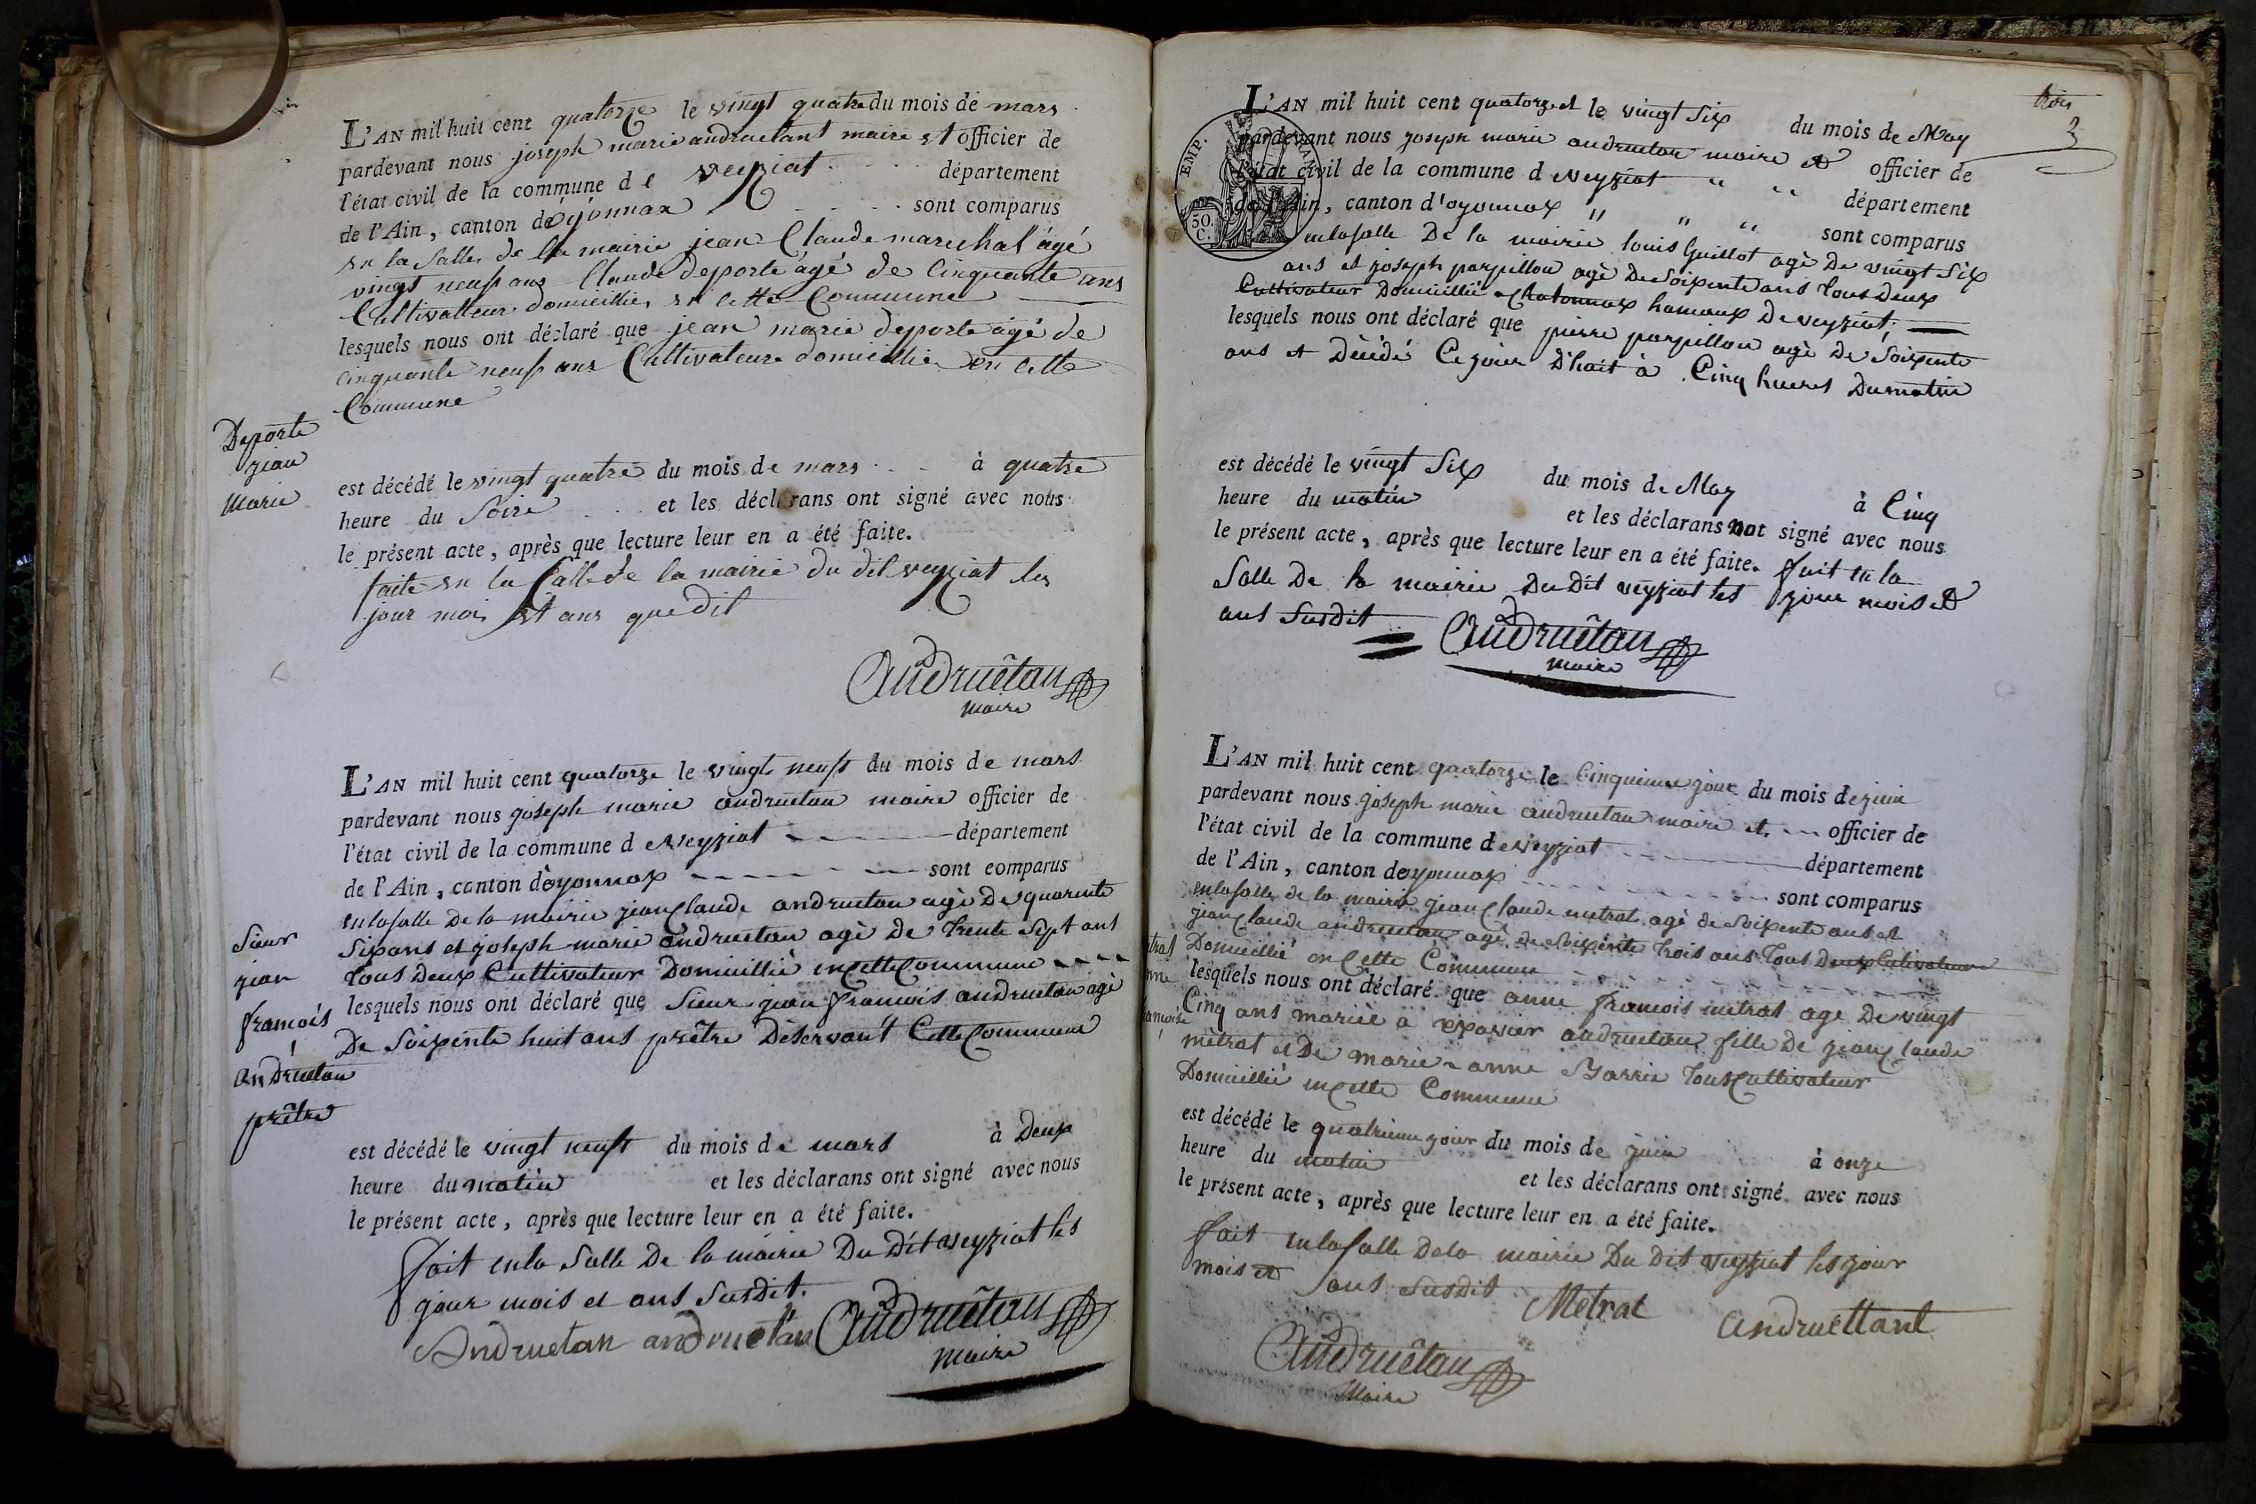 L'AN mil huit cent quatorze le vingt quatre du mois de mars
pardevant nous joseph marie andruetant maire et officier de
l'état civil de la commune de veyziat département
de l'Ain, canton d'oyonnax sont comparus
en la Salle de la mairie jean Claude marechal âgé
vingt neuf ans Claude deporte âgé de Cinquante ans
Cultivatteur domicilliés en Cette Commune
lesquels nous ont déclaré que jean marie deporte âgé de
Cinquante neuf ans Cultivateure domicillié en Cette
Commune
Deporte
jean
Marie
est décédé le vingt quatre du mois de mars à quatre
heure du Soire et les déclarans ont signé avec nous
le présent acte, après que lecture leur en a été faite.
faite en la Salle de la mairie du dit veyziat les
jour mois et ans que dit
Andruêtan
Maire
L'AN mil huit cent quatorze le vingt neuf du mois de mars
pardevant nous joseph marie andruetan maire officier de
l'état civil de la commune de veyziat département
de l'Ain, canton d'oyonnax sont comparus
en la salle De la mairie jean Claude andruetan agé De quarente
Six ans et joseph marie andruetan agé De trente Sept ans
tous Deux Cultivateur Domicillié en Cette Commune
lesquels nous ont déclaré que Sieur jean francois andruetan agé
De Soixente huit ans prêtre Désservant Cette Commune
Sieur
jean
francois
andruetan
prêtre
est décédé le vingt neuf du mois de mars à Deux
heure du matin et les déclarans ont signé avec nous
le présent acte, après que lecture leur en a été faite.
fait en la Salle De la mairie Du Dit veyziat les
jour mois et ans Susdit.
Andruetan andruetan Andruêtan
Maire
trois
3
EMP.
50.
C.
L'AN mil huit cent quatorze et le vingt Six du mois de May
pardevant nous joseph marie andruetan maire et officier de
l'état civil de la commune de veyziat département
de l'Ain, canton d'oyonnax sont comparus
en la salle De la mairie louis Guillot agé De vingt Six
ans et joseph parpillon agé De Soixente ans tous Deux
Cultivateur Domicillié a Chatonnax hamaux De veyziat,
lesquels nous ont déclaré que pierre parpillon agé De Soixente
ans et Décédé Ce jour D'huit à Cinq heures Du matin
est décédé le vingt Six du mois de May à Cinq
heure du matin et les déclarans not signé avec nous
le présent acte, après que lecture leur en a été faite. fait en la
Salle De la mairie Du Dit veyziat les jour mois et
ans Susdit
Andruêtan
Maire
L'AN mil huit cent quatorze le Cinquieme jour du mois de juin
pardevant nous joseph marie andruetan maire et officier de
l'état civil de la commune de veyziat département
de l'Ain, canton doyonnax sont comparus
en la salle de la mairie jean Claude metrat agé de Soixente ans et
jean Claude andruetan agé de Soixente trois ans tous Deux Cultivateur
Domicillié en Cette Commune
lesquels nous ont déclaré que anne francois metrat age De vingt
Cinq ans mariée a andruetan fille De jean Claude
métrat et De marie anne tous Cultivateur
Domicillié en Cette Commune
est décédé le quatrieme jour du mois de juin à onze
heure du matin et les déclarans ont signé avec nous
le présent acte, après que lecture leur en a été faite.
fait en la salle De la mairie Du Dit veyziat les jour
mois et ans Susdit
Metrat andruettant
Andruêtan
Maire